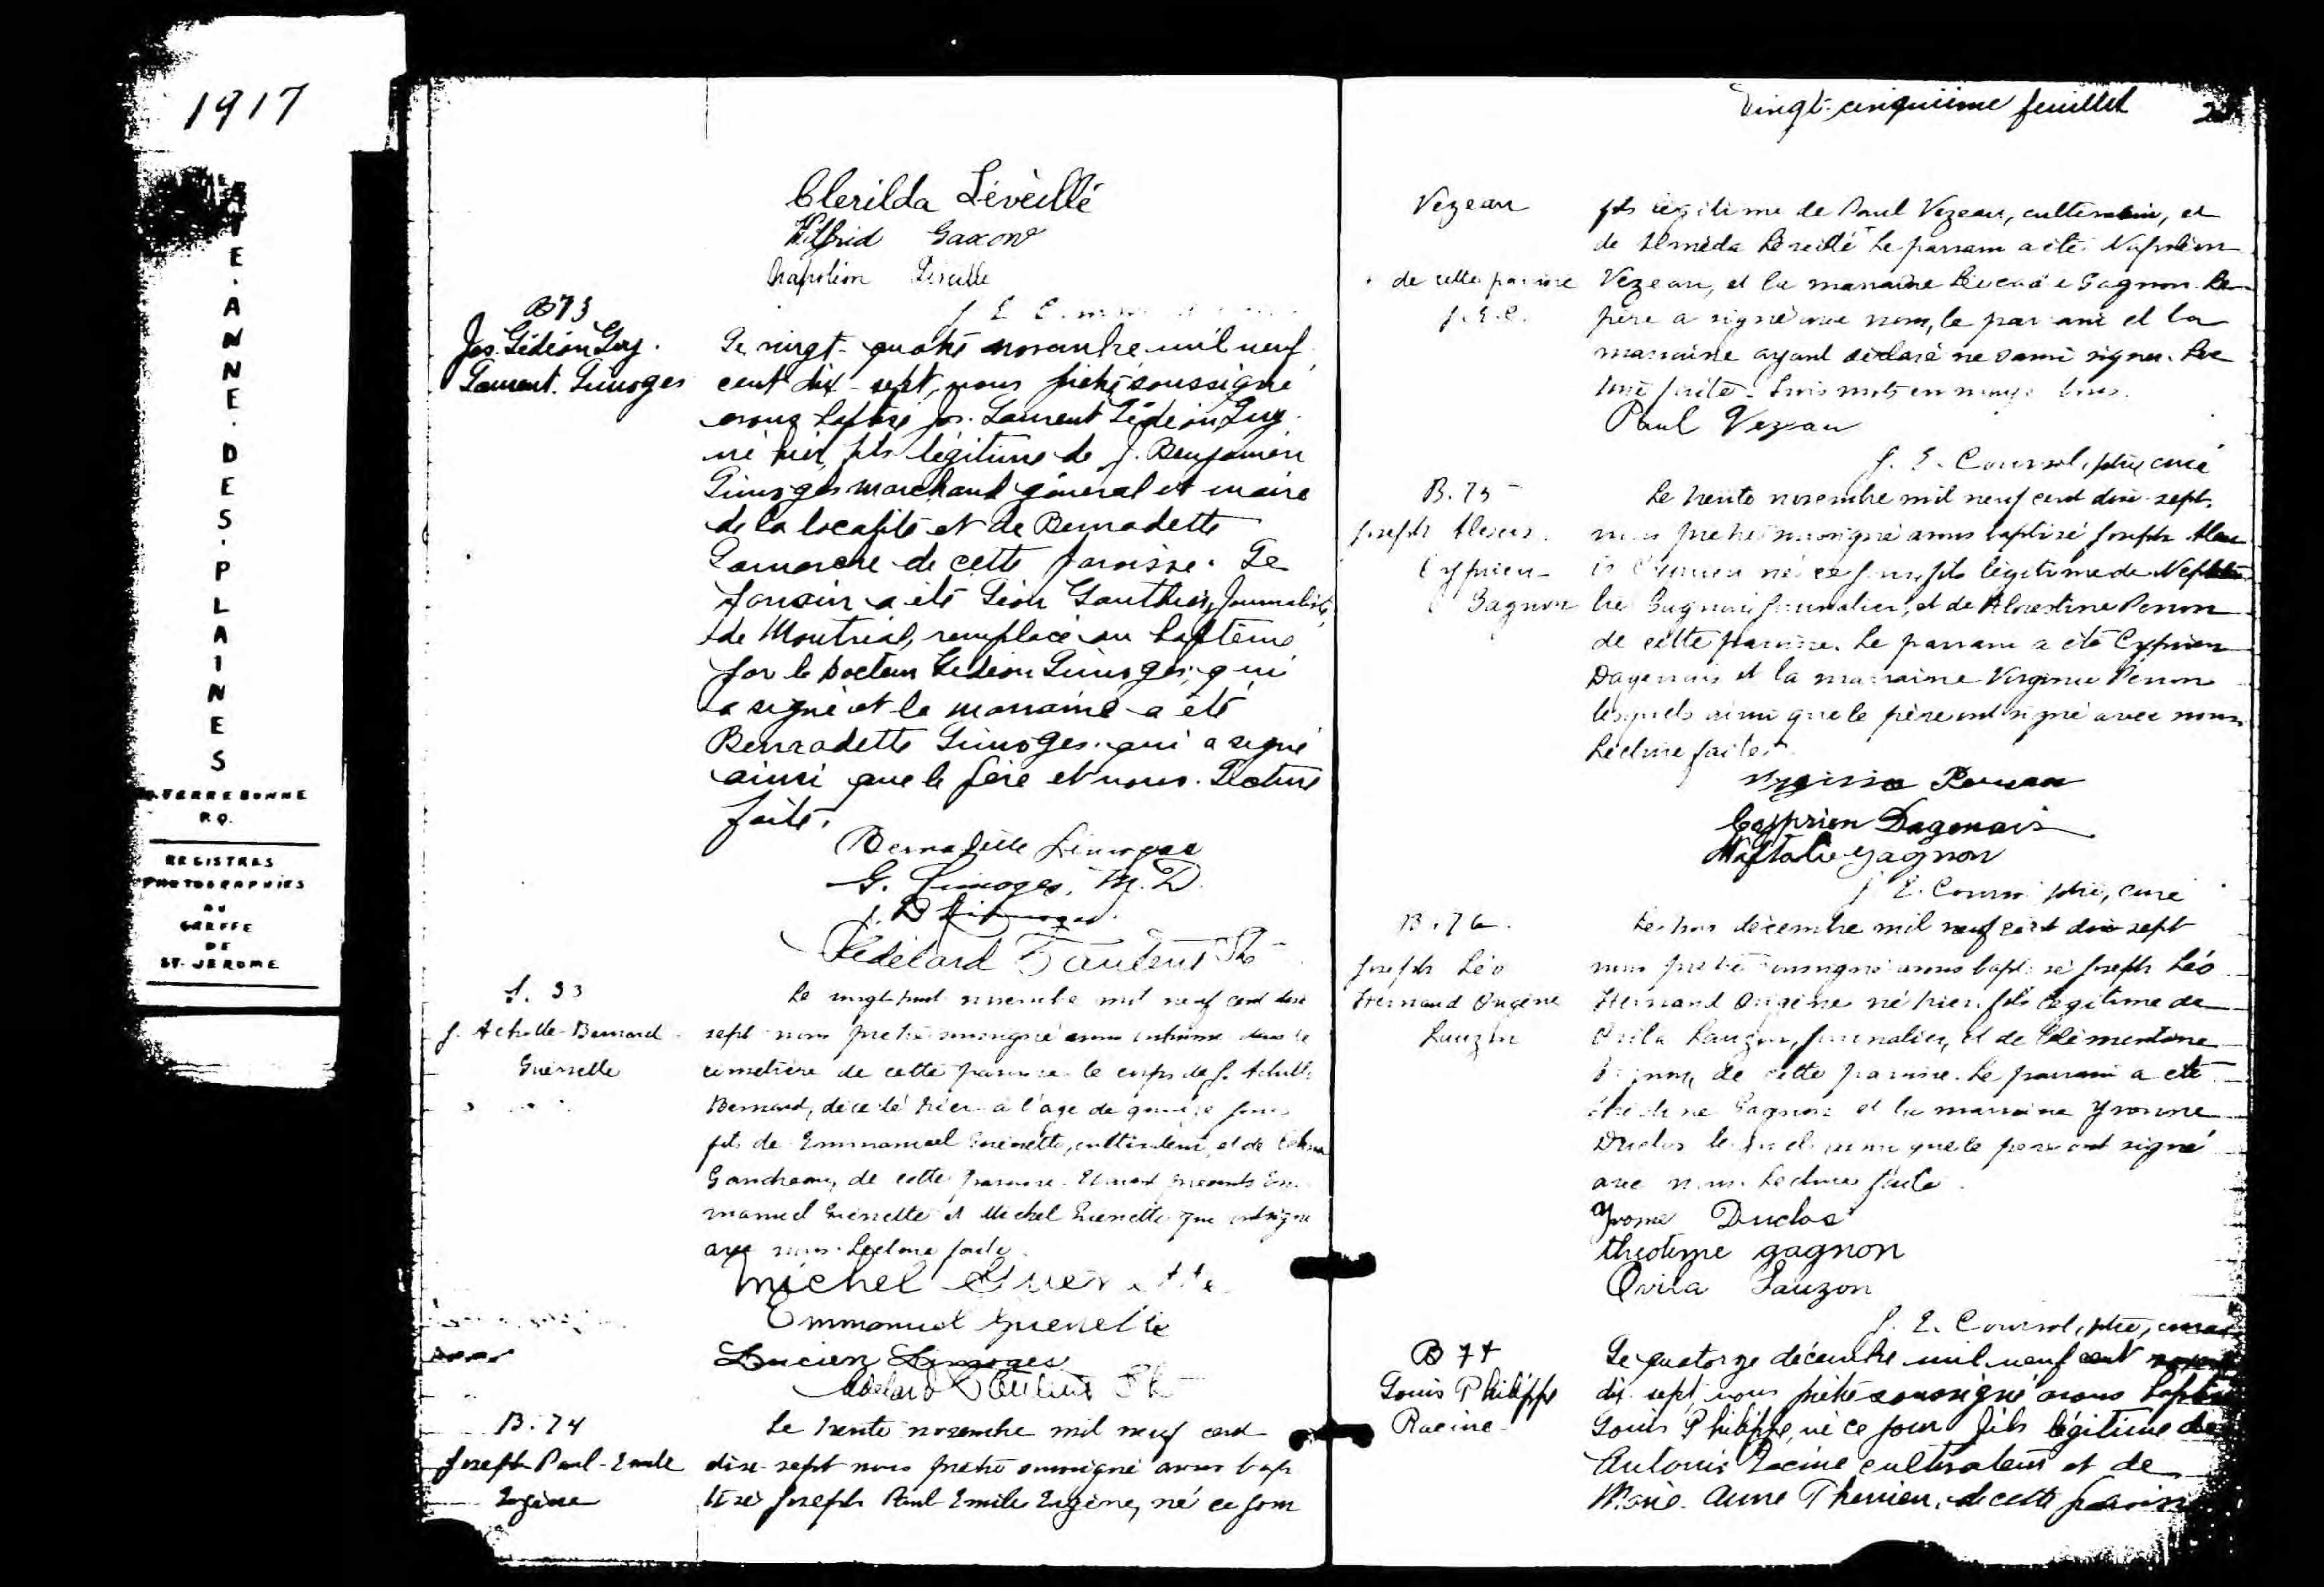 1917
E. ANNE. DES. PLAINES
TERREBONNE
P.Q.
REGISTRES
PHOTOGRAPHIES
AU
GREFFE
DE
ST-JEROME
Clerilda Léveillé
Wilfrid Gascon
Napoléon
B73
Jos. Gédéon Guy.
Laurent. Limoges
Le vingt-quatre novembre mil neuf
cent dix-sept, nous prêtre soussigné
avons baptisé Jos. Laurent Gédéon Guy
né hier, fils légitime de J. Benjamin
Limoges marchand général et maire
de la localité et de Bernadette
Lamarche de cette paroisse. Le
parrain a été Léon Gauthier, Journaliste,
de Montréal, remplacé au baptême
par le Docteur Gédéon Limoges, qui
a signé et la marraine a été
Bernadette Limoges qui a signé
ainsi que le père et nous. Lecture
faite.
Bernadette Limoges
G. Limoges, M.D.
J. B Limoges
S. 33
J. Achille-Bernard
Guénette
Le vingt-huit novembre mil neuf cent dix
sept nous prêtre soussigné avons inhumé dans le
cimetière de cette paroisse le corps de J. Achille
Bernard, décédé hier à l'age de quinze jours
fils de Emmanuel Guénette, cultivateur, et de
de cette paroisse. Etaient présents Em
manuel Guénette et Michel Guénette qui ont signé
avec nous. Lecture faite.
Michel Guénette
Emmanuel Guenette
Lucien Limoges
B. 74
Joseph Paul-Emile
Eugène
Le trente novembre mil neuf cent
dix-sept nous prêtre soussigné avons bap
tisé Joseph Paul-Emile Eugène, né ce jour
Vingt-cinquième feuillet
Vezeau
de cette paroisse
J. E. C.
fils légitime de Paul Vezeau, cultivateur, et
de Le parrain a été Napoléon
Vezeau, et la marraine Gagnon. Le
père a signé avec nous, le parrain et la
marraine ayant déclaré ne savoir signer. Lec
ture faite. Trois mots en marge bons.
Paul Vezeau
J. E. Coursol, ptre, curé
B. 75
Joseph Alexis
Cyprien
Gagnon
Le trente novembre mil neuf cent dix-sept,
nous prêtre soussigné avons baptisé Joseph Alex
is Cyprien né ce jour fils légitime de
Gagnon journalier, et de
de cette paroisse. Le parrain a été Cyprien
Dagenais et la marraine Virginie
lesquels ainsi que le père ont signé avec nous.
Lecture faite.
Cyprien Dagenais
Gagnon
J. E. Coursol ptre, curé
B. 76.
Joseph Léo
Hernand Ongène
Lauzon
Le trois décembre mil neuf cent dix-sept
nous prêtre soussigné avons baptisé Joseph Léo
Hernand Ongène né hier, fils légitime de
Ovila Lauzon, journalier, et de Clémentine
de cette paroisse. Le parrain a été
Théotime Gagnon et la marraine Yvonne
Duclos lesquels ainsi que le père ont signé
avec nous. Lecture faite.
Yvonne Duclos
théotime gagnon
Ovila Lauzon
J. E. Coursol, ptre, curé
B 77
Louis Philippe
Racine
Le quatorze décembre mil neuf cent
dix-sept, nous prêtre soussigné avons baptisé
Louis Philippe, né ce jour fils légitime de
Antonin Racine cultivateur et de
Marie-Anne Therrien, de cette paroisse